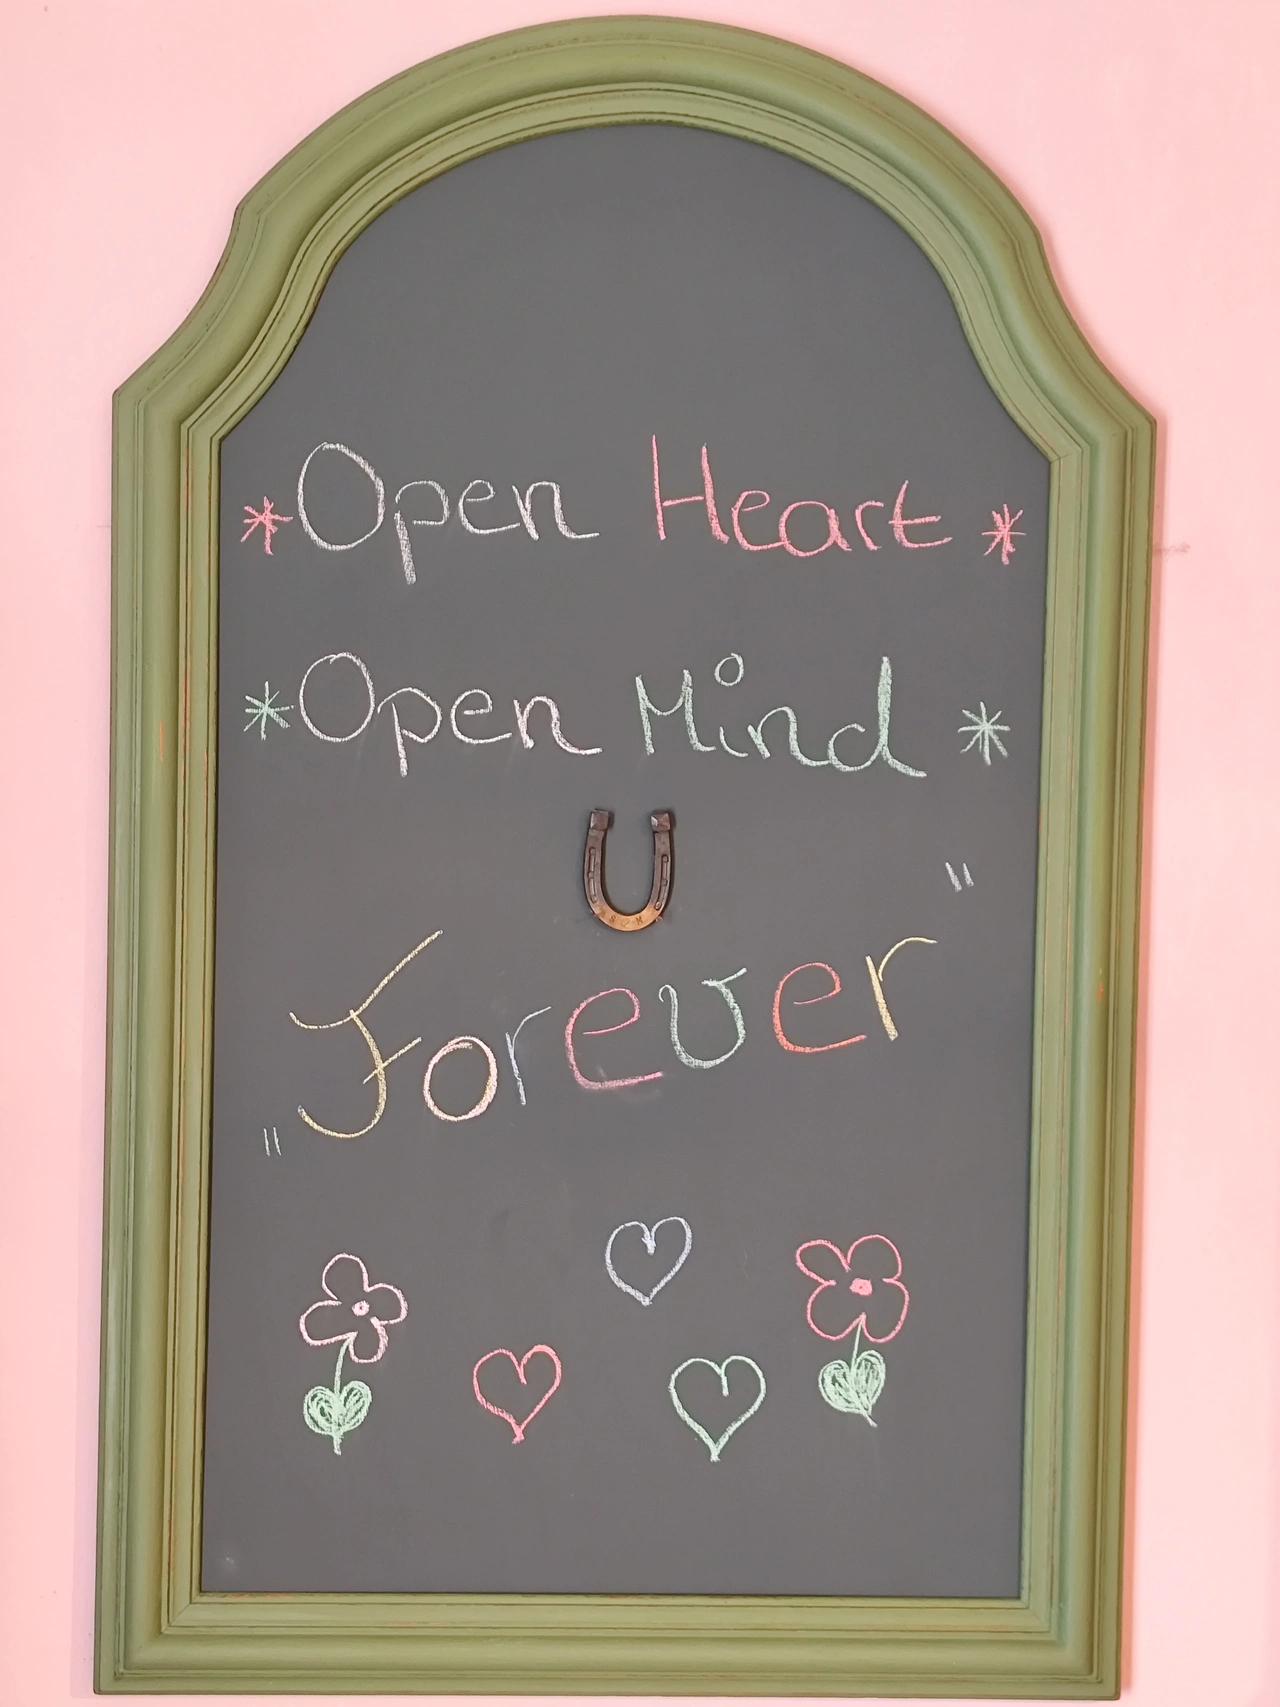 *Open Heart*
*Open Mind*
„Forever"